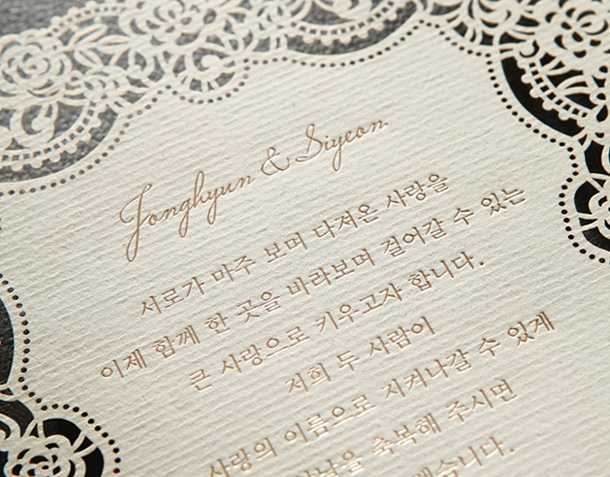 Jonghyun & Siyeon
서로가 마주 보며 다져온 사랑을
이제 함께 한 곳을 바라보며 걸어갈 수 있는
큰 사랑으로 키우고자 합니다.
저희 두 사람이
사랑의 이름으로 지켜나갈 수 있게
축복해 주시면